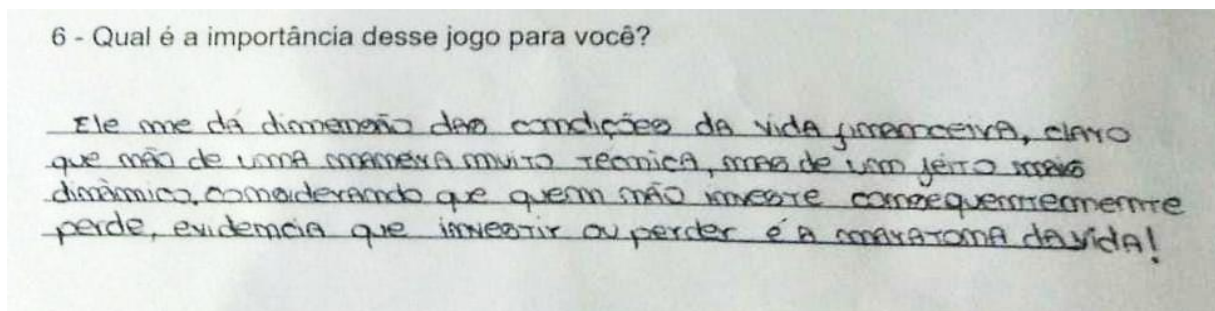 6 - Qual é a importância desse jogo para você?
Ele me dá dimensão das condições da vida financeira, claro
que não de uma maneira muito técnica, mas de um jeito mais
dinâmico, considerando que quem não investe consequentemente
perde, evidencia que investir ou perder é a maratona da vida!